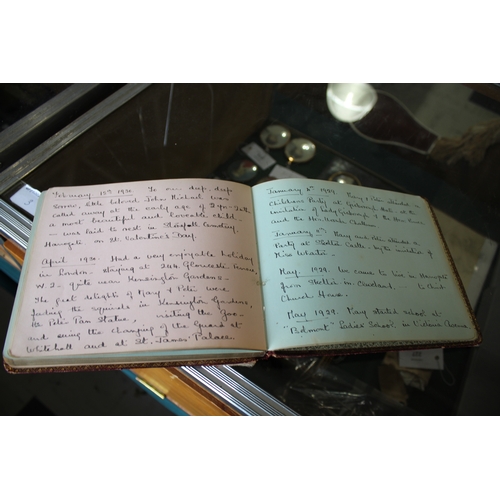 February 15th 1930. To our deep, deep
sorrow, little beloved John Michael was
called away at the early age of 2 yrs
a most beautiful and loveable child -
- was laid to rest in Cemetery,
Harrogate on St. Valentine's Day.
April 1930. Had a very enjoyable holiday
in London. Staying at 24A. Gloucester Terrace,
W.2. quite near Kensington Gardens -
The great delights of Mary & Peter were
feeding the squirrels in Kensington Gardens,
the Peter Pan Statue, visiting the Zoo -
and seeing the changing of the guard at
Whitehall and at St. James' Palace.
January 1929. Mary & Peter attended a
Children's Party at at the
invitation of Lady & the Hon.
and the Honble
January Mary and Peter attended a
Party at Skelton Castle - by the invitation of
Miss Wharton.
May. 1929. We came to live in Harrogate
from Skelton in Cleveland,
Church House.
May. 1929. Mary started school at
"Belmont" Ladies School in Victoria Avenue